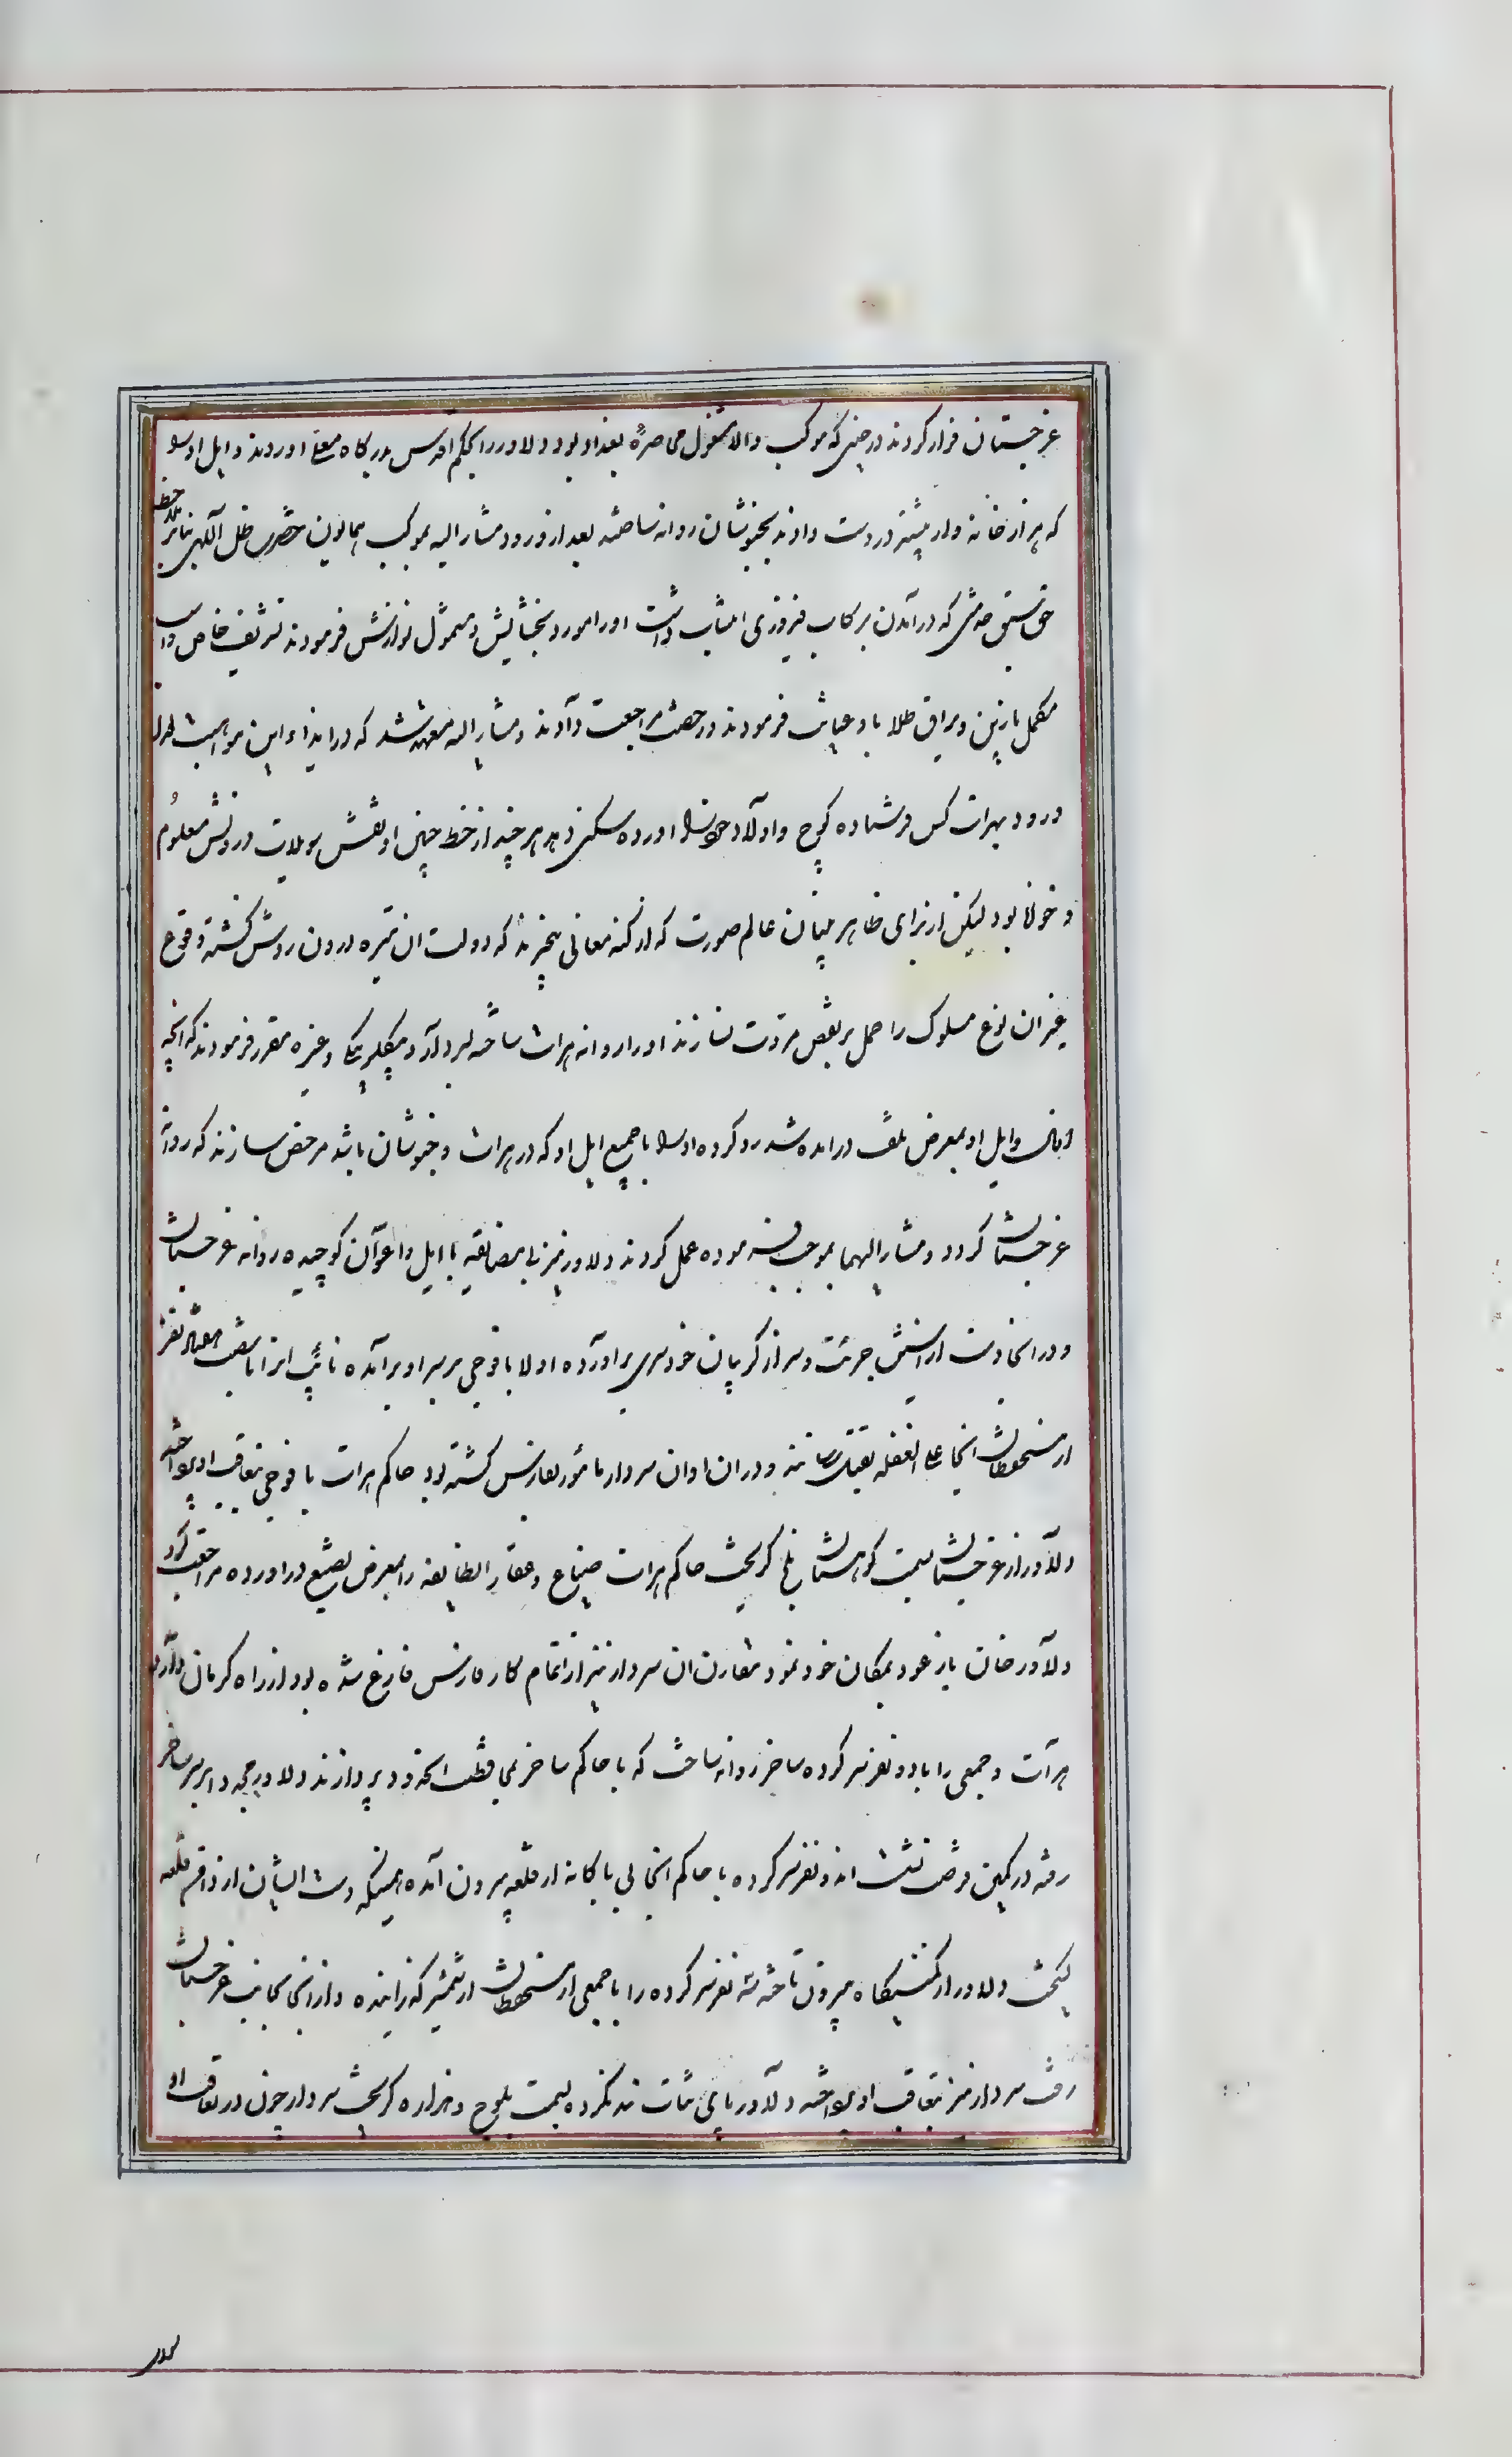 غرجستان فرار کردند در حینی که موکب والا مشغول محاصرهٔ بغداد بود دلاور را بحکم اقدس بدرگاه معلی اوردند و ایل او را
که هزار خانه وار میشد در دست دادند بخبوشان روانه ساختند بعد از ورود مشار الیه بموکب همایون حضرت ظل اللهی بنابر
حق سبق خدمتی که در آمدن برکاب فیروزی انتساب داشت او را مورد بخشایش و مشمول نوازش فرمودند تشریف خاص و اسب
مکمل بازین و یراق طلا باو عنایت فرمودند و رخصت مراجعت دادند و مشار الیه متعهد شد که در ازاء این مواهب
ورود بهرات کس فرستاده کوچ و اولاد خود را اورده سکنی دهد هر چند از خط جبین او نقش درونش معلوم
و خوانا بود لیکن از برای ظاهر بینان عالم صورت که از کنه معانی بیخبرند که دولت ان تیره درون روشن گشته وقوع
غیر ان نوع سلوک را حمل بر نقص مروت نسازند او را روانه هرات ساخته و بیکلربیکی و غیره مقرر فرمودند که انچه
از مال و ایل او بمعرض تلف درامده باشد رد کرده او را با جمیع ایل او که در هرات و خبوشان باشد مرخص سازند که روانه
غرجستان گردد و مشار الیهما بموجب فرموده عمل کردند دلاور نیز بی مضایقه با ایل و اعوان کوچیده روانه غرجستان
و در انجا دست از استین جرئت و سر از گریبان خودسری براورده اولا با فوجی بر سر اوبه آمده نایب انرا با هفتاد نفر
از مستحفظان انجا علی الغفله بقتل رسانید و در ان اوان سردار مامور بفارس گشته بود حاکم هرات با فوجی بتعاقب او پرداخته
دلاور از غرجستان بسمت کوهستان بلخ گریخت حاکم هرات ضیاع و عقار انطایفه را بمعرض تضییع دراورده مراجعت کرد
دلاور خان باز عود بمکان خود نمود مقارن ان سردار نیز از اتمام کار فارس فارغ شده بود از راه کرمان وارد
هرات و جمعی را با دو نفر سرکرده بساخر روانه ساخت که با حاکم ساخر بمحافظت انحدود پردازند دلاور بر سر ساخر
رفته در کمین فرصت نشست ان دو نفر سرکرده با حاکم انجا بی باکانه از قلعه بیرون آمده همینکه دست ایشان از دامن قلعه
گسیخت دلاور از کمینگاه بیرون تاخته سه نفر سرکرده را با جمعی از مستحفظان از شمشیر گذرانیده و از انجا بجانب غرجستان
رفت سردار نیز بتعاقب او پرداخته دلاور پای ثبات بند نکرده بسمت بلوچ و هزاره گریخت سردار چون در تعاقب او